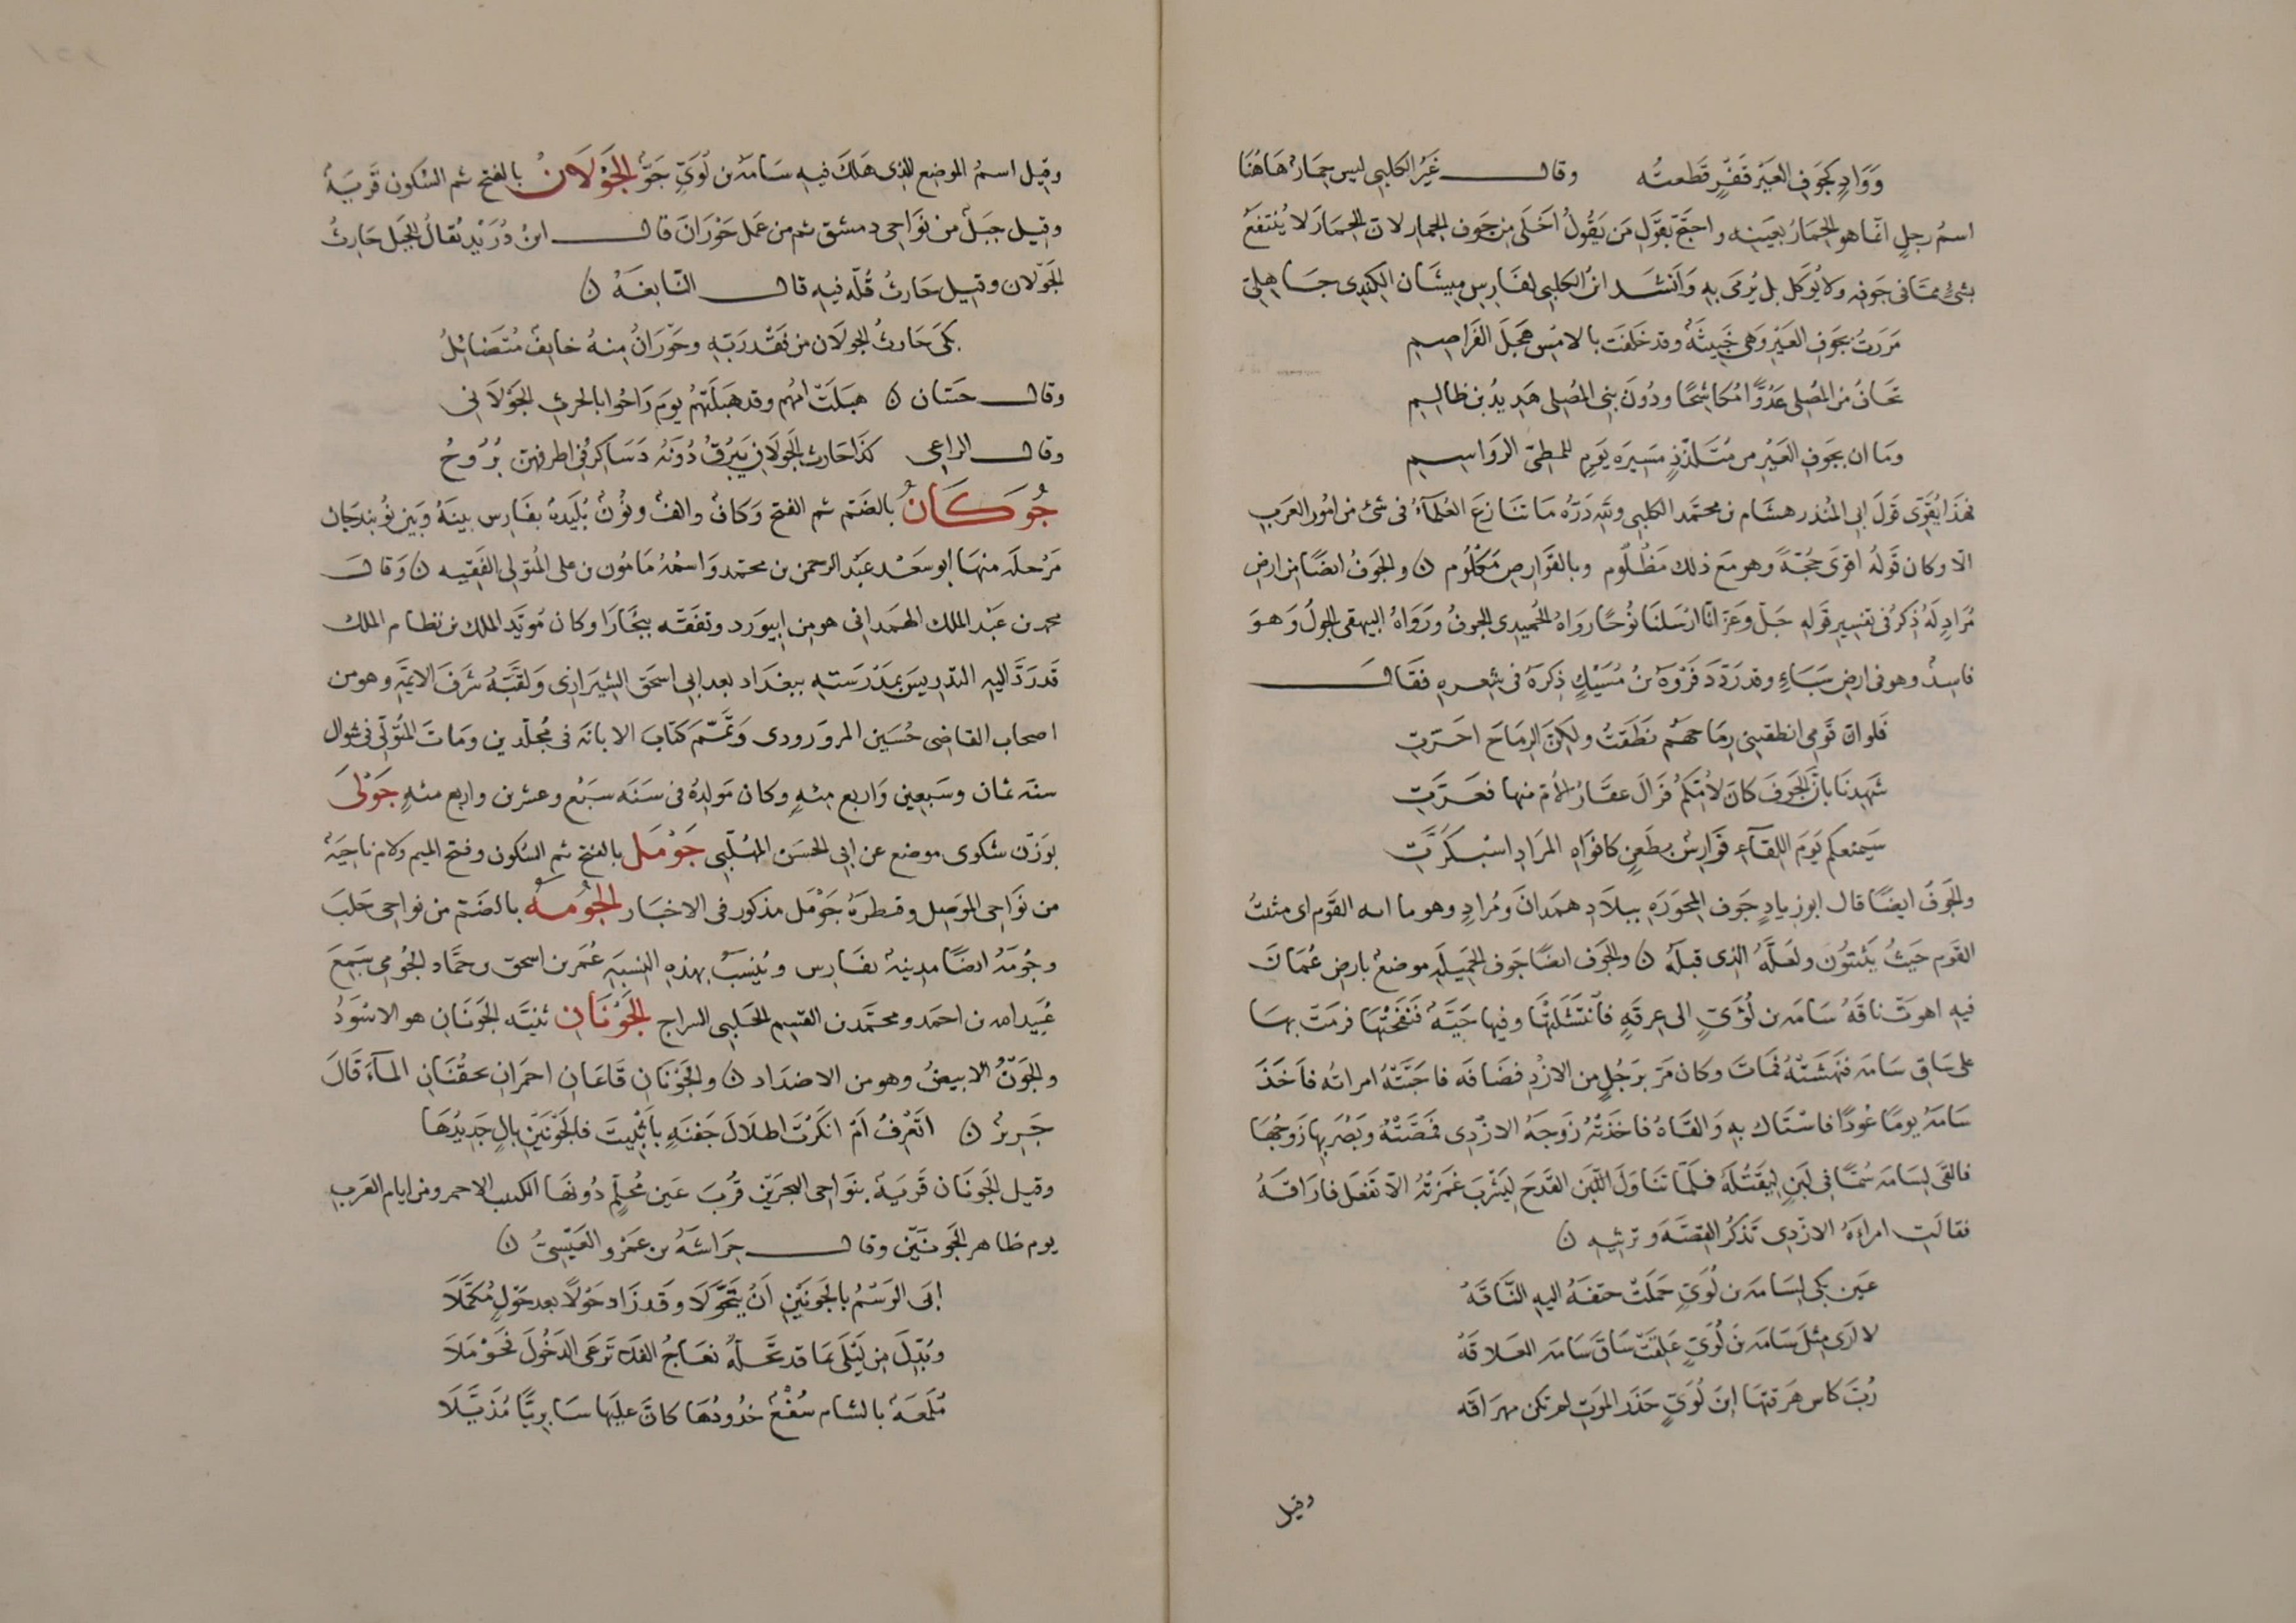 وَوَادٍ كَجَوفِ العَيْرِ قَفْرٍ قَطَعتُه وقال غَيْرُ الكلبي ليس حِمَارٌ هَاهُنَا
اسمُ رجلٍ انّما هو الحِمَارُ بعَينِه واحتجّ بقَوْلِ مَن يَقُولُ أخْلَى مِن جَوفِ الحِمار لان الحِمَارَ لا يُنتَفَعُ
بشئٍ ممّا في جَوفِه ولا يُؤكل بل يُرمَى بهِ وَانشَد ابنُ الكلبي لفَارِس مِيسَان الكِندِى جَاهِلِىّ
مَرَرتُ بجَوفِ العَيْرِ وَهِى خَبِيثَةٌ وقد خَلَفَت بالامْسِ هَجَلَ الفَراصِمِ
تَخَافُ مِن المُصلِى عَدُوًّا مُكاشِحًا ودُونَ بنى المُصلِى هَدِيدُ بن ظالِمِ
ومَا ان بجَوفِ العَيْرِ مِن مُتَلَذَّذٍ مَسِيرَه يَومٍ للمطِىّ الرَوَاسِمِ
فهَذا يُقَوِّى قَولَ ابى المُنذر هِشَام بن محمّد الكلبى وللهِ دَرّه مَا تَنَازعَ العُلَمَآءُ فى شئ من امُور العَربِ
الّا وكان قَولُه اقوَى حُجّةً وهو مَع ذلك مَظْلُوم وبالقَوَارِصِ مَكْلُوم ن والجَوفُ ايضًا من ارضِ
مُرَادٍ لَهُ ذِكرٌ فى تفسِيرِ قَولِهِ جَلّ وعَزّ انّا ارسَلنَا نُوحًا رواهُ الحُمِيدى الجوفُ ورَوَاهُ البيهقى الجولُ وَهوَ
فاسِدٌ وهو فى ارضِ سَبَاءٍ وقد رَدّد فَرْوَةُ بنُ مُسَيْكٍ ذِكرَهُ فى شِعرِهِ فقَال
فَلو انّ قَومِى انطقتنى رِمَاحهُم نَطَقتُ ولكِنّ الرِمَاحَ اجَرّتِ
شَهِدنَا بانّ الجَوفَ كانَ لامّكم فزَالَ عقَارُ الأمّ منها فعَرّتِ
سَيمنعكم يَومَ اللِقَآءِ فَوَارِسٌ بطَعنٍ كافوَاهِ المزَادِ اسْبَكرّتِ
والجَوفُ ايضًا قال ابو زيادٍ جَوف المحورَةِ ببلَادِ همدَانَ ومُرَادٍ وهو مااه القَوم اى مثبتُ
القَوم حَيثُ يَثبتُون ولعَلّهُ الذى قبلَه ن والجَوف ايضًا جَوف الخَمِيلَهِ موضعٌ بارضِ عُمَانَ
فيهِ اهوت ناقَهُ سَامَه بن لُؤَىّ الى عِرفَةٍ فانتشَلَتهَا وفيها حَيّةٌ فنَفَخَتْهَا فرمَت بهَا
على سَاقِ سَامَه فنَهَشَتْهُ فمَاتَ وكان مَرّ برَجُلٍ من الازْدِ فضَافَه فاحَبّتْهُ امراته فاخَذَ
سَامَهُ يومًا عُودًا فاستَاك بهِ وَالقَاهُ فاخذتْهُ زَوجَهُ الازْدِى فمَصّتْهُ وبَصُرَ بها زَوجُهَا
فالقَى لسَامَه سُمًّا فى لَبنٍ لِيَقتُلَهُ فلَمّا تنَاوَلَ اللّبن القَدحَ لِيَشْربَ غمَزتْهُ الّا تفعَل فارَاقَهُ
فقالَتِ امراءَهُ الازْدِى تَذكُرُ القِصّهَ وترثيهِ ن
عَين بَكِّى لِسَامَه بن لُؤَىّ حَمَلَت حتفَهُ اليهِ النّاقَهُ
لا ارَى مِثلَ سَامَه بن لُؤَىّ عَلِقَت سَاقَ سَامَه العَلاقَهُ
رُبّ كاسٍ هرقتهَا ابنَ لُؤَىّ حَذَر المَوتِ لم تكن مهرَاقَه
وقيل
وقِيل اسمُ الموضِع الذِى هَلَكَ فيهِ سَامَهُ بن لُؤَىّ جَوٌّ الجَوْلَانُ بالفتح ثم السّكون قَريَةٌ
وقيل جبَلٌ من نَوَاحِى دمشق ثم من عَمَل حَوْرَانَ قال ابنُ دُرَيْد يُقالُ للجَبل حَارثُ
الجَولان وقيل حَارثُ قُلّه فيهِ قال النّابغَهُ ن
بكَى حَارثُ الجولَان من فَقْد رَبّهِ وحَورَانُ مِنهُ خايفٌ مُتَضائِلُ
وقال حَسّان ن هبلَتْ امّهم وقد هَبلَتْهُم يومَ رَاحُوا بالحرثِ الجَوْلَانى
وقال الراعى كذا حَارثُ الجَولَانِ يَبرُقُ دُونَه دَسَاكِرُ فى اطرافهنّ بُرُوجُ
جُوَكَانُ بالضّم ثم الفتح وَكافٌ والفٌ ونُونٌ بُلَيدةٌ بفَارِس بينَهُ وبَينَ نُوبندجَان
مَرحلَه منهَا ابو سَعْد عبْد الرحمن بن محمّد وَاسمُهُ مَامُون بن على المُتولى الفَقِيه ن وَقال
محمد بن عَبْد الملك الهمَدانى هو مِن ابيوَرد وتفَقّه ببُخَارَا وكان مُويّد الملك بن نظام الملك
قَد رَدَّ اليه التدريسَ بمَدْرَستِهِ ببغدَاد بعد ابى اسحق الشِيرَازى ولقّبَهُ شَرفَ الايمّةِ وهو من
اصحاب القاضى حُسَين المروَرودى وَتمّم كتَابَ الابانَه فى مُجلّدين ومَاتَ المُتولّى فى شوال
سنَه ثمان وسَبعِين وَاربع مِئهٍ وكان مَولِدُهُ فى سَنَه سَبْع وعشرين واربع مئهٍ جَوْلَى
بوَزن شكوى موضع عن ابى الحَسَن المهلّبى جَوْمَل بالفتح ثم السُّكون وفتح الميم ولام ناحِيَهٌ
من نَوَاحِى المَوصِل وقنطَرَهُ جَوْمَل مذكور فى الاخبَار الجُومَهُ بالضَمّ من نواحِى حَلبَ
وجُومَهُ ايضًا مدِينهٌ بفَارِس ويُنْسَبُ بهذِهِ النسبَةِ عُمَر بن اسحق بن حمَّاد الجُومى سَمِعَ
عُبَيد الله بن احمَد ومحمّد بن القسِم الحَلبِى السراج الجَوْنَانِ تثنيَّه الجَونَانِ هو الاسْوَدُ
والجَوْنُ الابيضُ وهو من الاضدَاد ن والجَوْنَانِ قَاعَانِ احمَرَانِ يحقُنَانِ المآءَ قَالَ
جَرِيرٌ ن اتَعْرِفُ امْ انكَرْتَ اطلَالَ جَفنَهٍ باَثبِيتَ فالجَوْنَيْنِ بالٍ جَدِيدُهَا
وقيل الجَونَان قَريَهٌ بنَوَاحِى البحرَيْن قُربَ عَين مُحلّمٍ دُونهَا الكثيب الاحمر ومن ايام العَربِ
يوم ظاهر الجَونَيْن وقال خِرَاشَهُ بن عَمْرو العَبْسِىُّ ن
ابَى الرَسْمُ بالجَونَيْنِ اَنْ يتَحَوَّلَا وقَد زَاد حَوْلًا بعد حَوْلٍ مُكَمَّلَا
وبُدِّلَ مِن لَيْلَى بمَا قد تَحُلّهُ نعَاجُ الفَلا تَرعَى الدَخُولَ فحَوْمَلَا
مُلَمّعَهٌ بالشام سُفْعٌ خدُودُهَا كانّ علَيهَا سَابرِيًّا مُذَيَّلَا